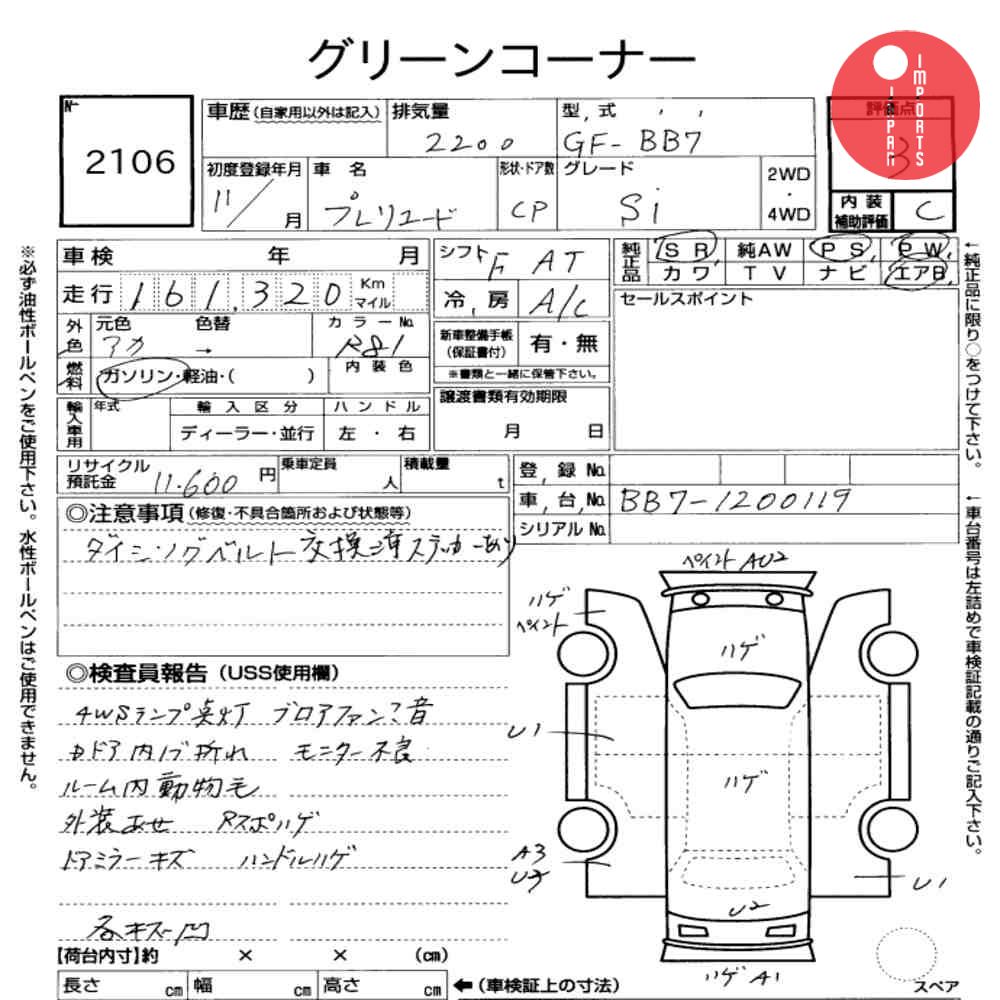 グリーンコーナー
JAPAN IMPORTS
No 2106
車歴(自家用以外は記入) 排気量 2200 型式 GF-BB7 評価点 3
初度登録年月 11/ 月 車名 プレリュード 形状・ドア数 CP グレード Si 2WD・4WD
内装補助評価 C
車検 年 月 シフト F AT 純正品 SR 純AW PS PW
カワ TV ナビ エアB
走行 161,320 Km マイル 冷房 A/C セールスポイント
外色 元色 アカ 色替 → カラーNo. R81 新車整備手帳(保証書付) 有・無
※書類と一緒に保管下さい。
燃料 ガソリン・軽油・( ) 内装色
譲渡書類有効期限 月 日
輸入車用 年式 輸入区分 ディーラー・並行 ハンドル 左・右
リサイクル預託金 11.600 円 乗車定員 人 積載量 t 登録No.
車台No. BB7-1200119
シリアルNo.
◎注意事項(修復・不具合箇所および状態等)
タイミングベルト交換済ステッカーあり
◎検査員報告(USS使用欄)
4WSランプ点灯 ブロアファン?音
内ドア内ハゲ折れ モニター不良
ルーム内動物毛
外装あせ Rスポハゲ
ドアミラーキズ ハンドルハゲ
各キズ凹
ペイント AU2
ハゲ
ペイント
ハゲ
U1
ハゲ
A3
U3
U1
U2
ハゲ A1
スペア
【荷台内寸】約 × × (cm)
長さ cm 幅 cm 高さ cm ←(車検証上の寸法)
※必ず油性ボールペンをご使用下さい。水性ボールペンはご使用できません。
←純正品に限り○をつけて下さい。
←車台番号は左詰めで車検証記載の通りご記入下さい。